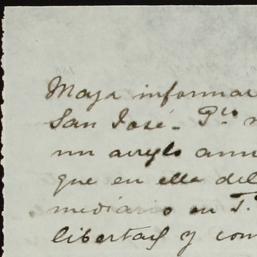 Maza informa
San José - Pto
un arreglo ami
que en ella del
mediario en
libertad y com